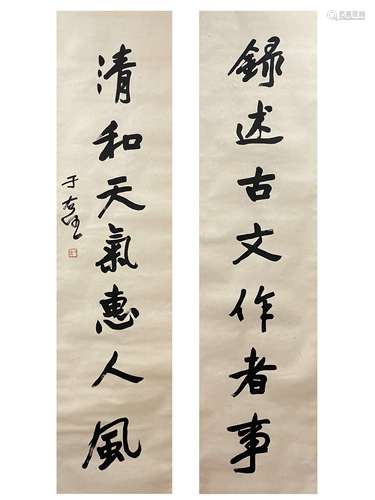 錄述古文作者事
清和天氣惠人風
于右任